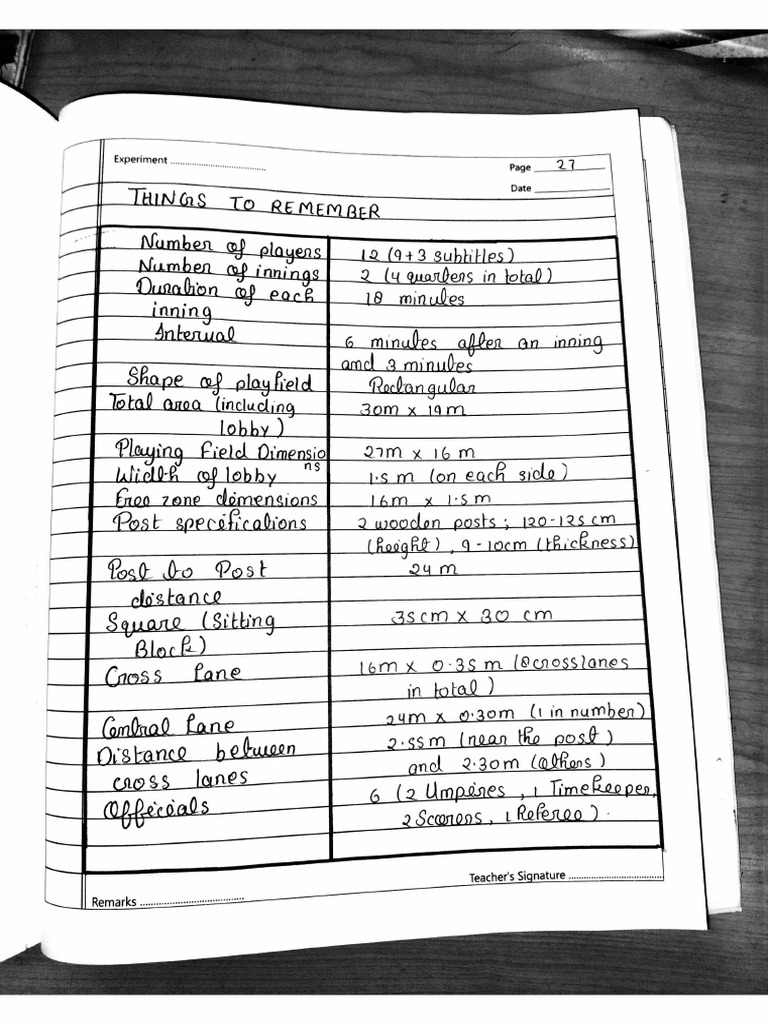 Experiment
Page 27
Date
THINGS TO REMEMBER
Number of players 12 (9+3 subtitles)
Number of innings 2 (4 quarters in total)
Duration of each 18 minutes
inning
Interval 6 minutes after an inning
and 3 minutes
Shape of playfield Rectangular
Total area (including 30m x 19m
lobby)
Playing Field Dimensio 27m x 16 m
ns
Width of lobby 1.5 m (on each side)
Free zone dimensions 16m x 1.5m
Post specifications 2 wooden posts; 120-125 cm
(height), 9-10cm (thickness)
Post to Post 24 m
distance
Square (Sitting 35cm x 30 cm
Block)
Cross Lane 16m x 0.35 m (8 crosslanes
in total)
Central Lane 24m x 0.30m (1 in number)
Distance between 2.55m (near the post)
cross lanes and 2.30m (others)
Officials 6 (2 Umpires, 1 Timekeeper,
2 Scorers, 1 Referee).
Teacher's Signature
Remarks